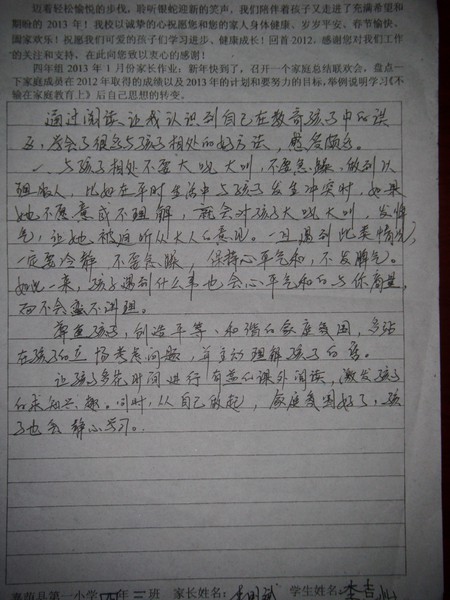 迈着轻松愉悦的步伐，聆听银蛇迎新的笑声，我们陪伴着孩子又走进了充满希望和
期盼的 2013 年！我校以诚挚的心祝愿您和您的家人身体健康、岁岁平安、春节愉快、
阖家欢乐！祝愿我们可爱的孩子们学习进步、健康成长！回首 2012，感谢您对我们工作
的关注和支持，在此向您致以衷心的感谢！
四年组 2013 年 1 月份家长作业：新年快到了，召开一个家庭总结联欢会，盘点一
下家庭成员在 2012 年取得的成绩以及 2013 年的计划和要努力的目标，举例说明学习《不
输在家庭教育上》后自己思想的转变。
通过阅读，让我认识到自己在教育孩子中的误
区，学会了很多与孩子相处的好方法，感受颇多。
一、与孩子相处不要大吼大叫，不要急躁，做到以
理服人，比如在平时生活中与孩子发生冲突时，如果
她不愿意或不理解，就会对孩子大吼大叫，发脾
气，让她被迫听从大人的意见。一旦遇到此类情况，
一定要冷静，不要急躁，保持心平气和，不发脾气。
如此一来，孩子遇到什么事也会心平气和的与你商量，
而不会蛮不讲理。
尊重孩子，创造平等、和谐的家庭氛围，多站
在孩子的立场考虑问题，并主动理解孩子的
让孩子多花时间进行有益的课外阅读，激发孩子
的求知兴趣。同时，从自己做起，家庭氛围好了，孩
子也会静心学习。
县第一小学 四年三班 家长姓名： 学生姓名：李